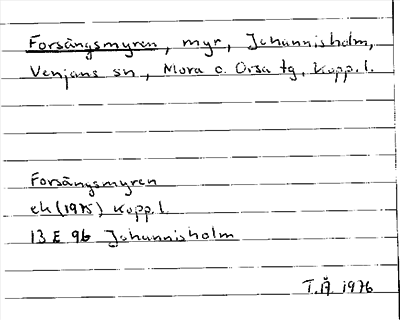 Forsängsmyren, myr, Johannisholm,
Venjans sn., Mora o. Orsa tg, Kopp. l.
Forsängsmyren
ek (1975) Kopp. l.
13 E 9b Johannisholm
T.Å 1976